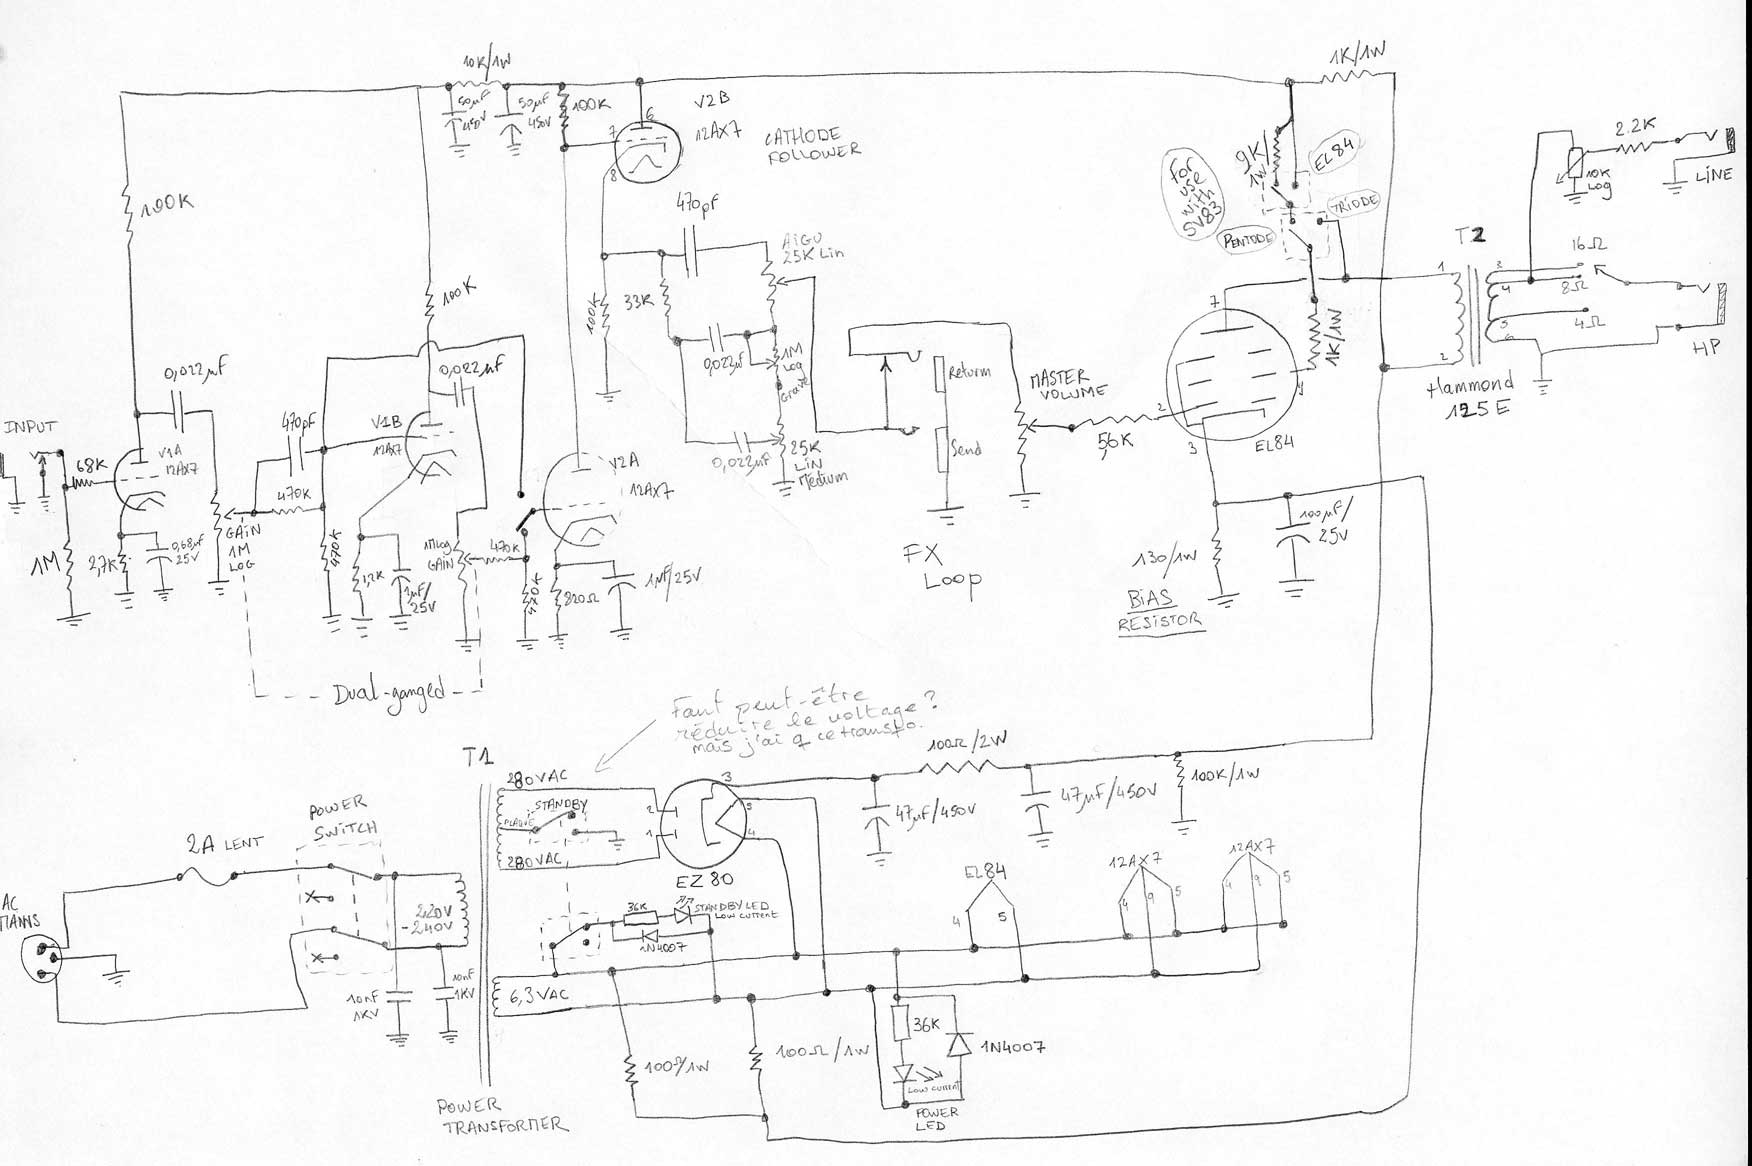 10K/1W
1K/1W
50µF
450V
50µF
450V
100K
V2B
12AX7
6
7
8
CATHODE
FOLLOWER
9K/
1W
EL84
For
use
with
SV83
PENTODE
TRIODE
2.2K
10K
LOG
LINE
100K
470pF
AIGU
25K Lin
T2
16Ω
8Ω
4Ω
1
2
3
4
5
6
HP
100K
100K
33K
7
1K/1W
Hammond
125E
0,022µF
0,022µF
0,022µF
1M
LOG
Grave
Return
MASTER
VOLUME
56K
2
3
EL84
INPUT
68K
V1A
12AX7
470pF
V1B
12AX7
V2A
12AX7
0,022µF
25K
LIN
Medium
Send
1M
2,7K
0,68µF
25V
GAIN
1M
LOG
470K
470K
1,2K
1µF/
25V
1M Log
GAIN
470K
470K
820Ω
1µF/25V
FX
Loop
130/1W
100µF/
25V
BIAS
RESISTOR
Dual-ganged
Faut peut-être
réduire le voltage?
mais j'ai q ce transfo.
T1
280VAC
STANDBY
PLAQUE
280VAC
2
1
3
5
4
EZ80
100Ω/2W
47µF/450V
47µF/450V
100K/1W
POWER
SWITCH
2A LENT
AC
MAINS
220V
-240V
10nF
1KV
10nF
1KV
36K
STANDBY LED
LOW CURRENT
1N4007
EL84
4
5
12AX7
4
9
5
12AX7
4
9
5
6,3VAC
100Ω/1W
100Ω/1W
36K
1N4007
LOW CURRENT
POWER
LED
POWER
TRANSFORMER